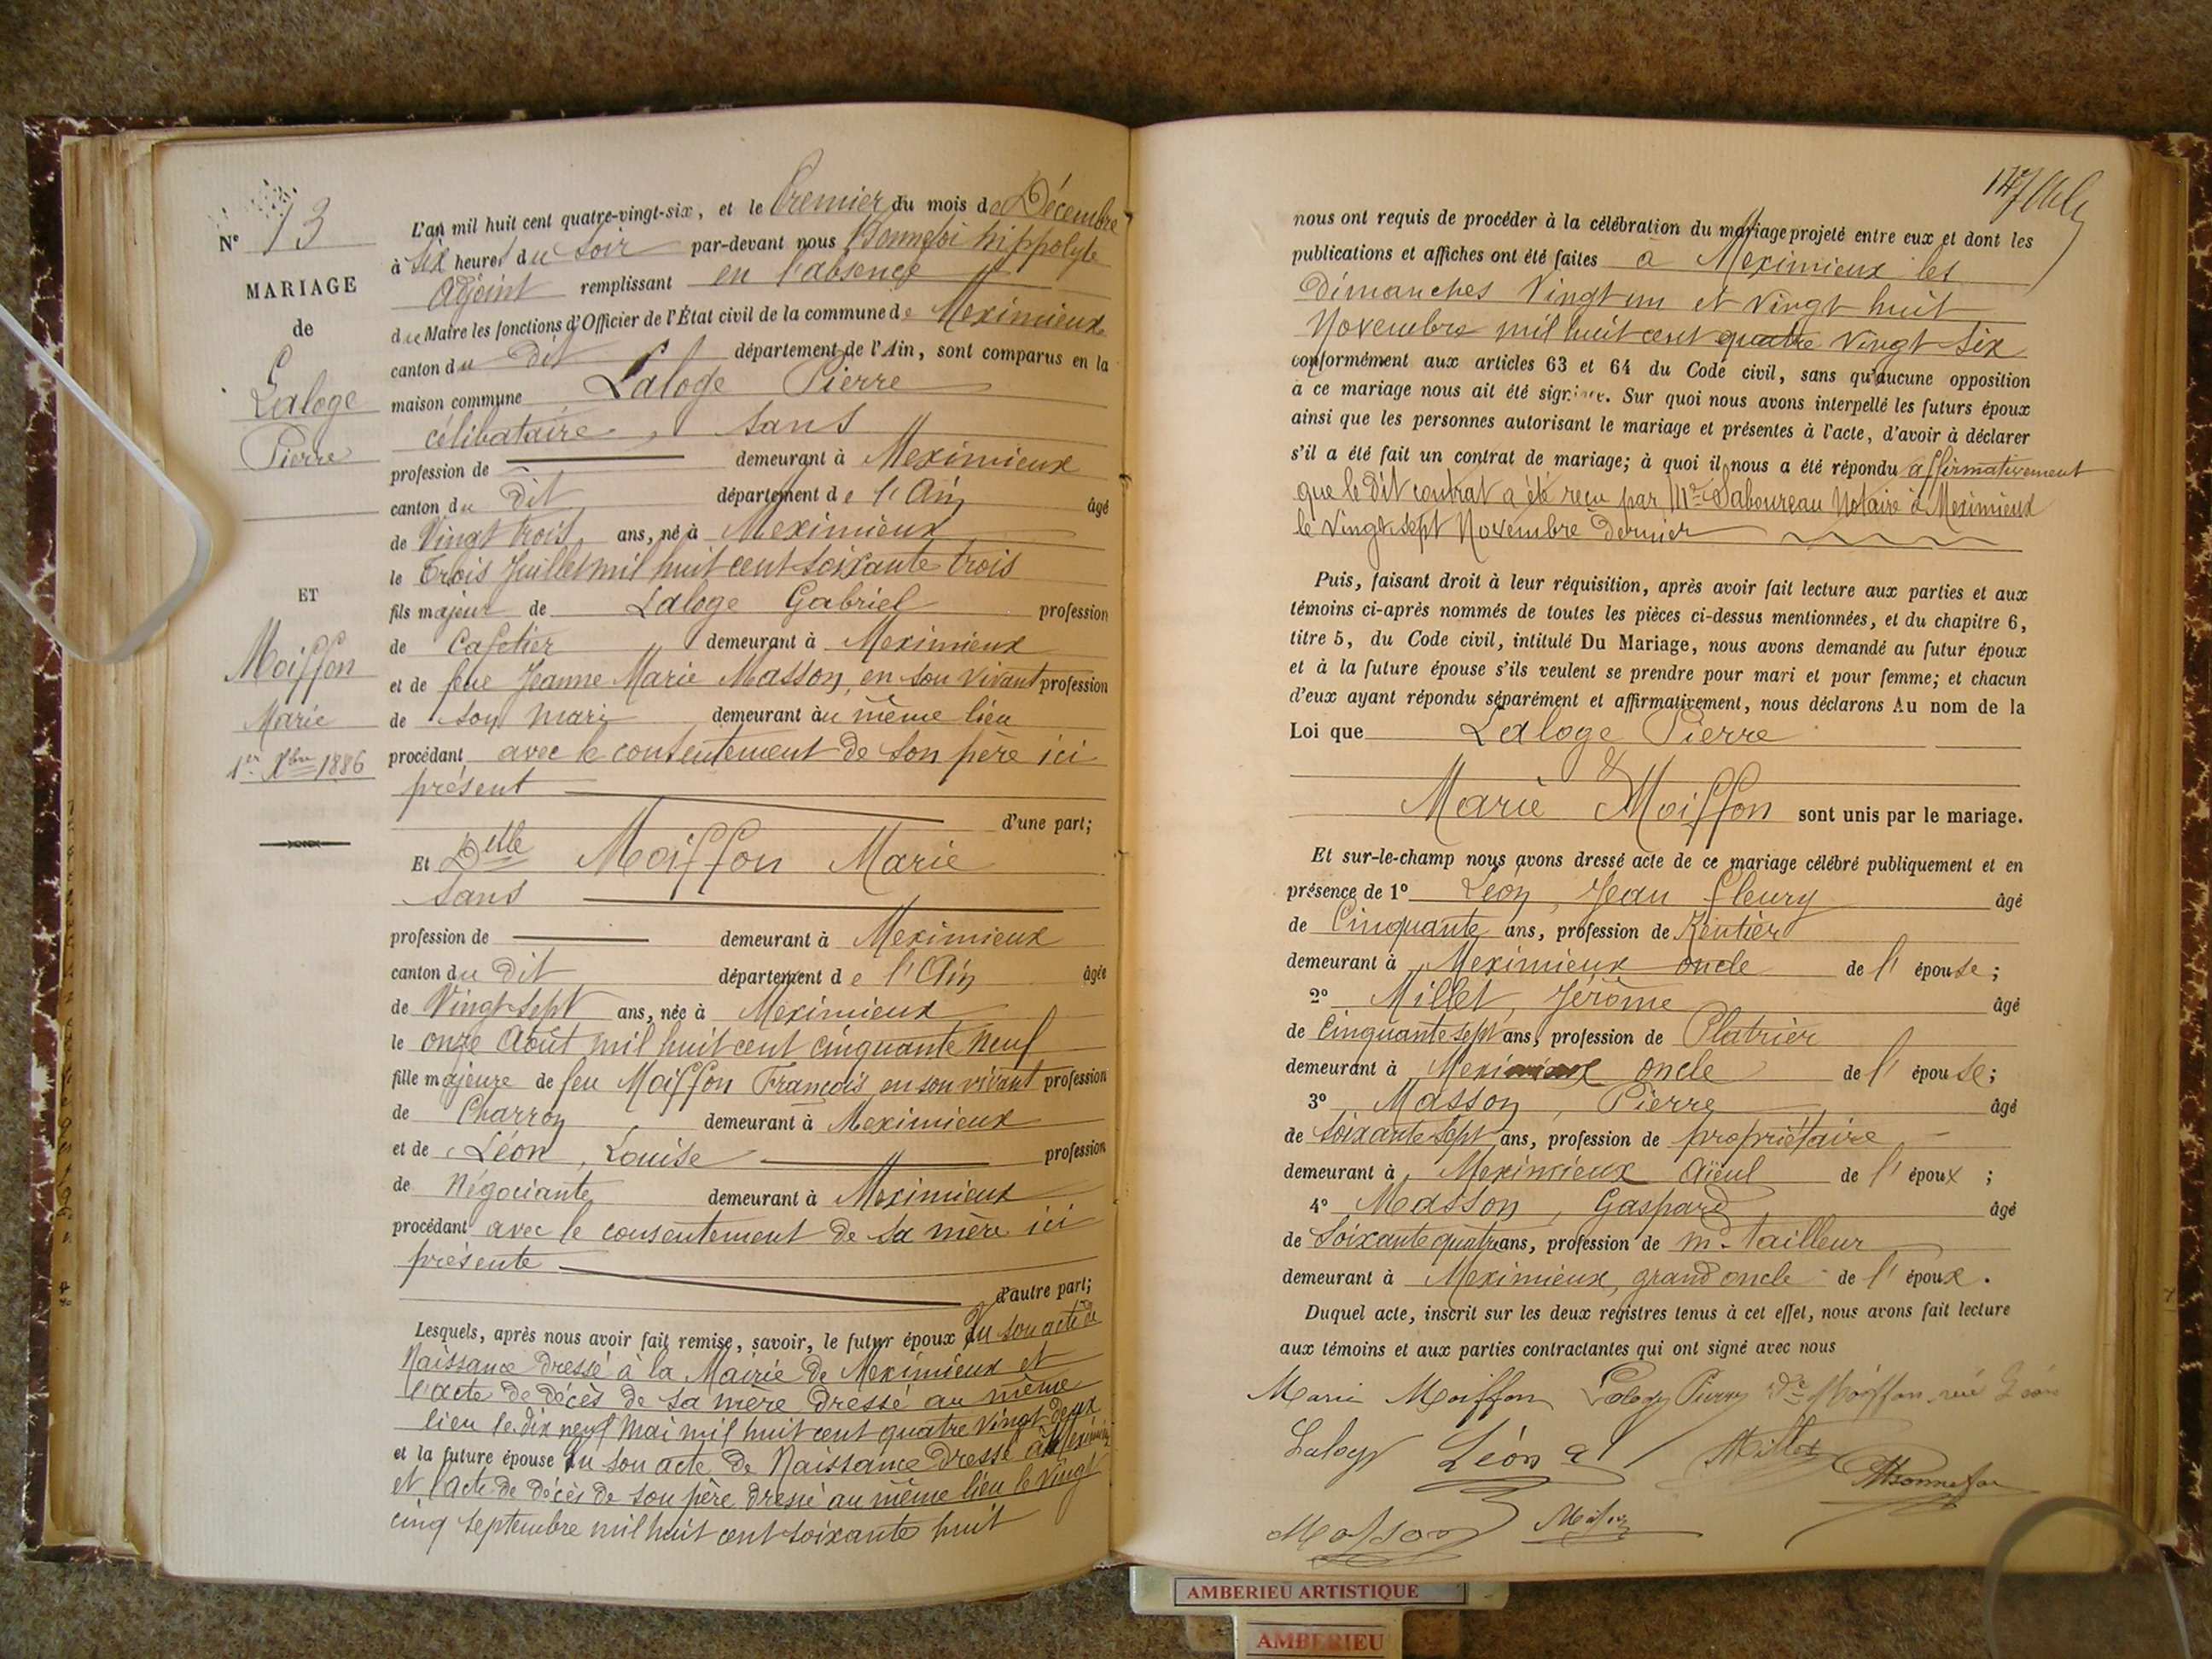 N° 13
MARIAGE
de
Laloge
Pierre
ET
Moiffon
Marie
1er Xbre 1886
L'an mil huit cent quatre-vingt-six, et le Premier du mois de Décembre
à six heures du soir par-devant nous Bonnefoi hippolyte
Adjoint remplissant en l'absence
du Maire les fonctions d'Officier de l'État civil de la commune de Meximieux
canton du dit département de l'Ain, sont comparus en la
maison commune Laloge Pierre
célibataire, sans
profession de demeurant à Meximieux
canton du dit département de l'Ain âgé
de Vingt trois ans, né à Meximieux
le trois Juillet mil huit cent soixante trois
fils majeur de Laloge Gabriel profession
de Cafetier demeurant à Meximieux
et de feue Jeanne Marie Masson, en son vivant profession
de son mari demeurant au même lieu
procédant avec le consentement de son père ici
présent
d'une part;
Et Delle Moiffon Marie
sans
profession de demeurant à Meximieux
canton du dit département de l'Ain âgée
de Vingt sept ans, née à Meximieux
le onze Août mil huit cent cinquante neuf
fille majeure de feu Moiffon François en son vivant profession
de Charron demeurant à Meximieux
et de Léon, Louise profession
de Négociante demeurant à Meximieux
procédant avec le consentement de sa mère ici
présente
d'autre part;
Lesquels, après nous avoir fait remise, savoir, le futur époux du son acte de
Naissance dressé à la Mairie de Meximieux et
l'acte de décès de sa mère dressé au même
lieu le dix neuf Mai mil huit cent quatre vingt deux
et la future épouse du son acte de Naissance dressé à Meximieux
et l'acte de décès de son père dressé au même lieu le vingt
cinq septembre mil huit cent soixante huit
147
nous ont requis de procéder à la célébration du mariage projeté entre eux et dont les
publications et affiches ont été faites à Meximieux les
dimanches vingt un et vingt huit
Novembre mil huit cent quatre vingt six
conformément aux articles 63 et 64 du Code civil, sans qu'aucune opposition
à ce mariage nous ait été signifiée. Sur quoi nous avons interpellé les futurs époux
ainsi que les personnes autorisant le mariage et présentes à l'acte, d'avoir à déclarer
s'il a été fait un contrat de mariage; à quoi il nous a été répondu affirmativement
que le dit contrat a été reçu par Me Saboureau Notaire à Meximieux
le vingt sept Novembre dernier
Puis, faisant droit à leur réquisition, après avoir fait lecture aux parties et aux
témoins ci-après nommés de toutes les pièces ci-dessus mentionnées, et du chapitre 6,
titre 5, du Code civil, intitulé Du Mariage, nous avons demandé au futur époux
et à la future épouse s'ils veulent se prendre pour mari et pour femme; et chacun
d'eux ayant répondu séparément et affirmativement, nous déclarons Au nom de la
Loi que Laloge Pierre
&
Marie Moiffon sont unis par le mariage.
Et sur-le-champ nous avons dressé acte de ce mariage célébré publiquement et en
présence de 1° Léon, Jean fleury âgé
de Cinquante ans, profession de Rentier
demeurant à Meximieux oncle de l'épouse;
2° Millet, Jérôme âgé
de Cinquante sept ans, profession de Platrier
demeurant à Meximieux oncle de l'épouse;
3° Masson, Pierre âgé
de soixante sept ans, profession de propriétaire
demeurant à Meximieux aïeul de l'époux ;
4° Masson, Gaspard âgé
de Soixante quatre ans, profession de md tailleur
demeurant à Meximieux, grand oncle de l'époux.
Duquel acte, inscrit sur les deux registres tenus à cet effet, nous avons fait lecture
aux témoins et aux parties contractantes qui ont signé avec nous
Marie Moiffon Laloge Pierre Moiffon née Léon
Laloge Léon Millet Bonnefoi
Masson Masson
AMBERIEU ARTISTIQUE
AMBERIEU